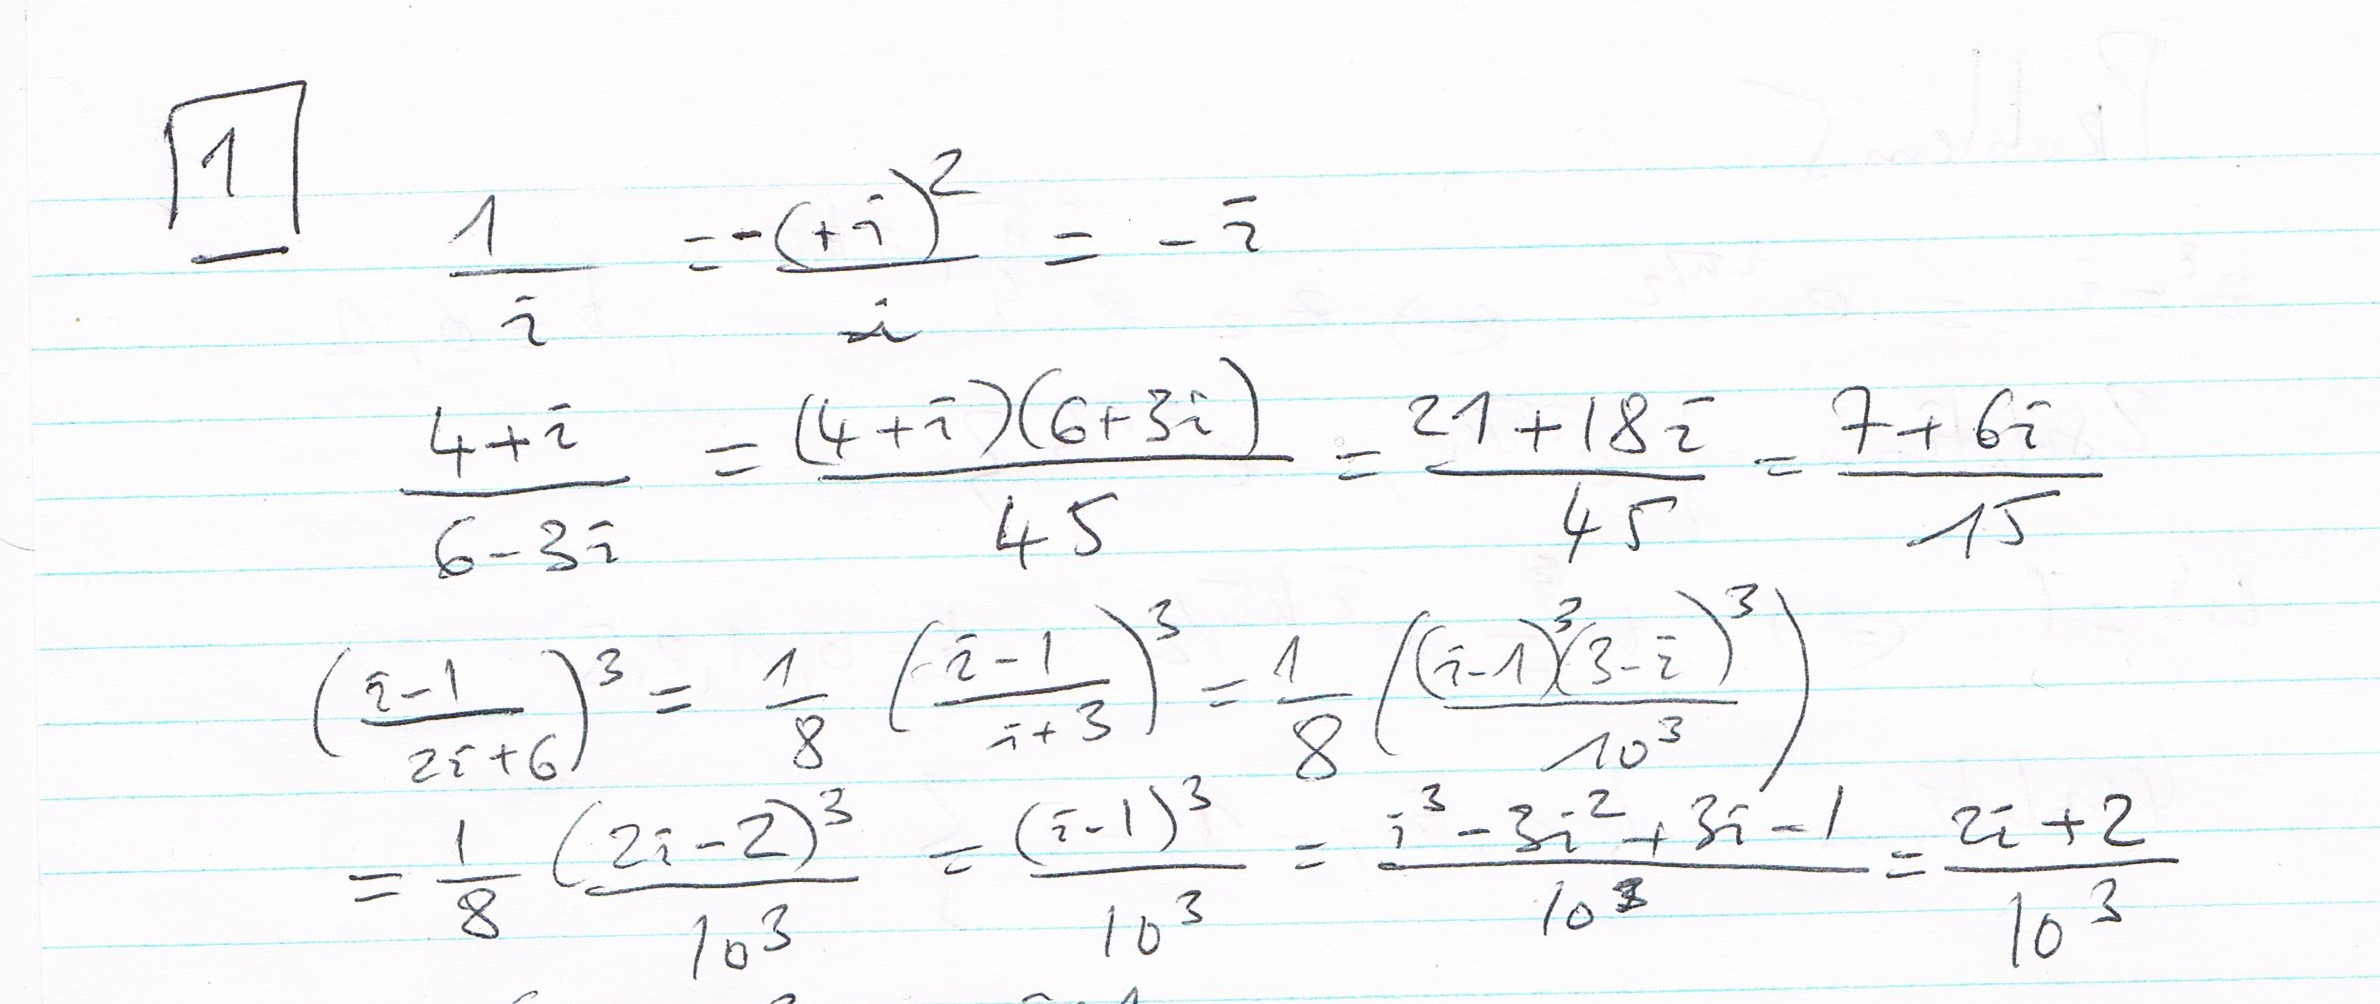 1
1/i = -(+i)²/i = -i
(4+i)/(6-3i) = (4+i)(6+3i)/45 = (21+18i)/45 = (7+6i)/15
((i-1)/(2i+6))³ = 1/8 ((i-1)/(i+3))³ = 1/8 ((i-1)³(3-i)³/10³)
= 1/8 (2i-2)³/10³ = (i-1)³/10³ = (i³-3i²+3i-1)/10³ = (2i+2)/10³